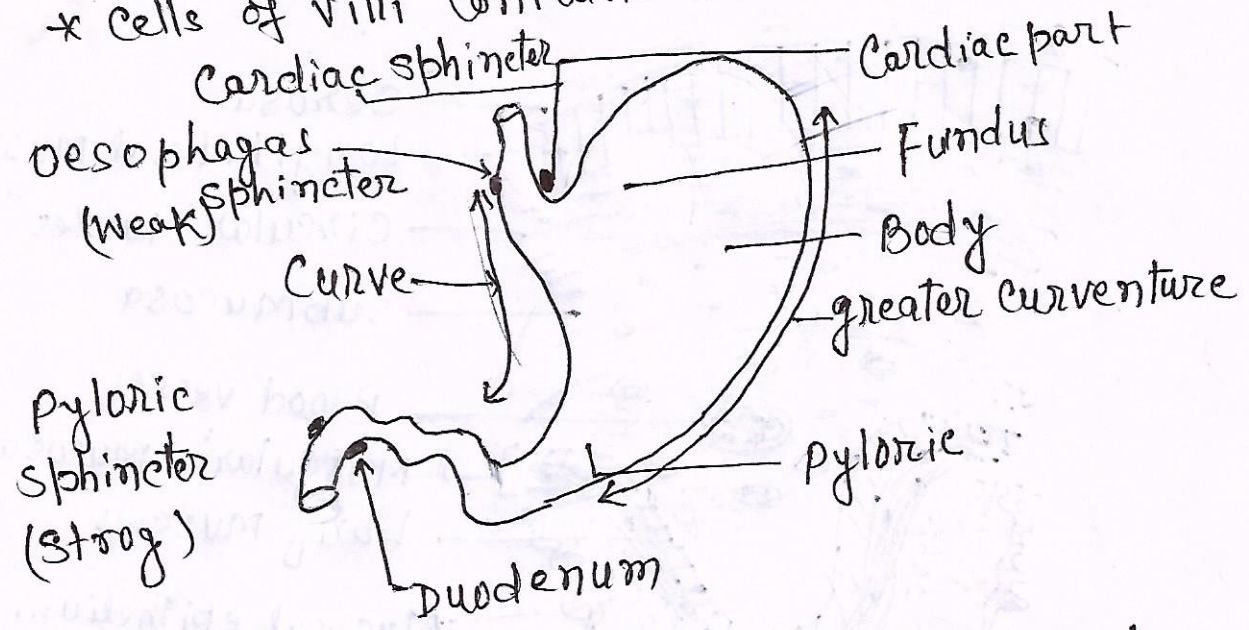 * Cells of Villi
Cardiac sphincter
Cardiac part
Oesophagas
sphincter
(Weak)
Fundus
Body
Curve
greater curventure
Pyloric
sphincter
(strog)
Pyloric
Duodenum